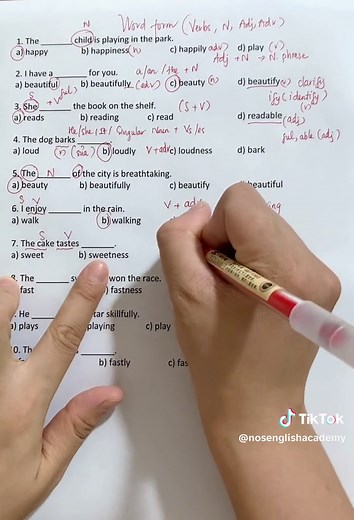 N Word form (Verbs, N, Adj, Adv)
1. The ______ child is playing in the park.
a) happy b) happiness (n) c) happily adv) d) play (v)
Adj + N → N. phrase
a/an/the + N
2. I have a ______ for you.
a) beautiful b) beautifully (adv) c) beauty (n) d) beautify (v) clarify
S + V ify (identify)
3. She ______ the book on the shelf. (S + V) (v)
a) reads b) reading c) read d) readable (adj)
He/she/It/ Singular Noun + Vs/es ful, able (adj)
4. The dog barks ______.
a) loud b) loudly V + adv c) loudness d) bark
5. The N of the city is breathtaking.
a) beauty b) beautifully c) beautify beautiful
S V V + adv
6. I enjoy ______ in the rain.
a) walk b) walking
S V
7. The cake tastes ______.
a) sweet b) sweetness
8. The ______ won the race.
fast fastness
He ______ tar skillfully.
a) plays playing c) play
0. The ______.
b) fastly
TikTok
@nosenglishacademy